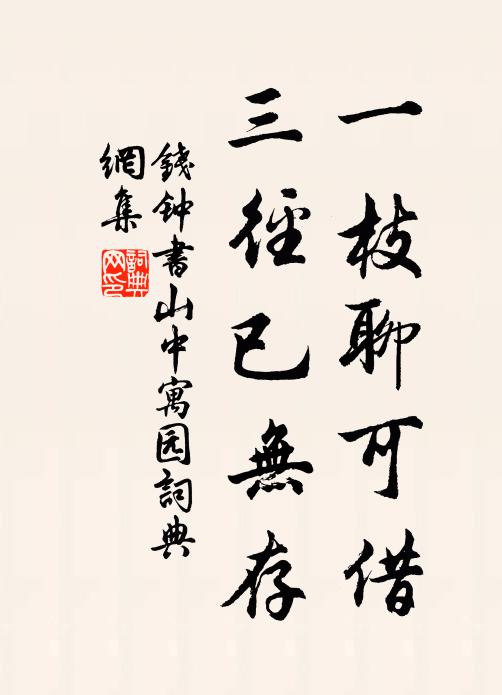 一枝聊可借
三徑已無存
錢钟書山中寓园詞典
網集
詞典网印